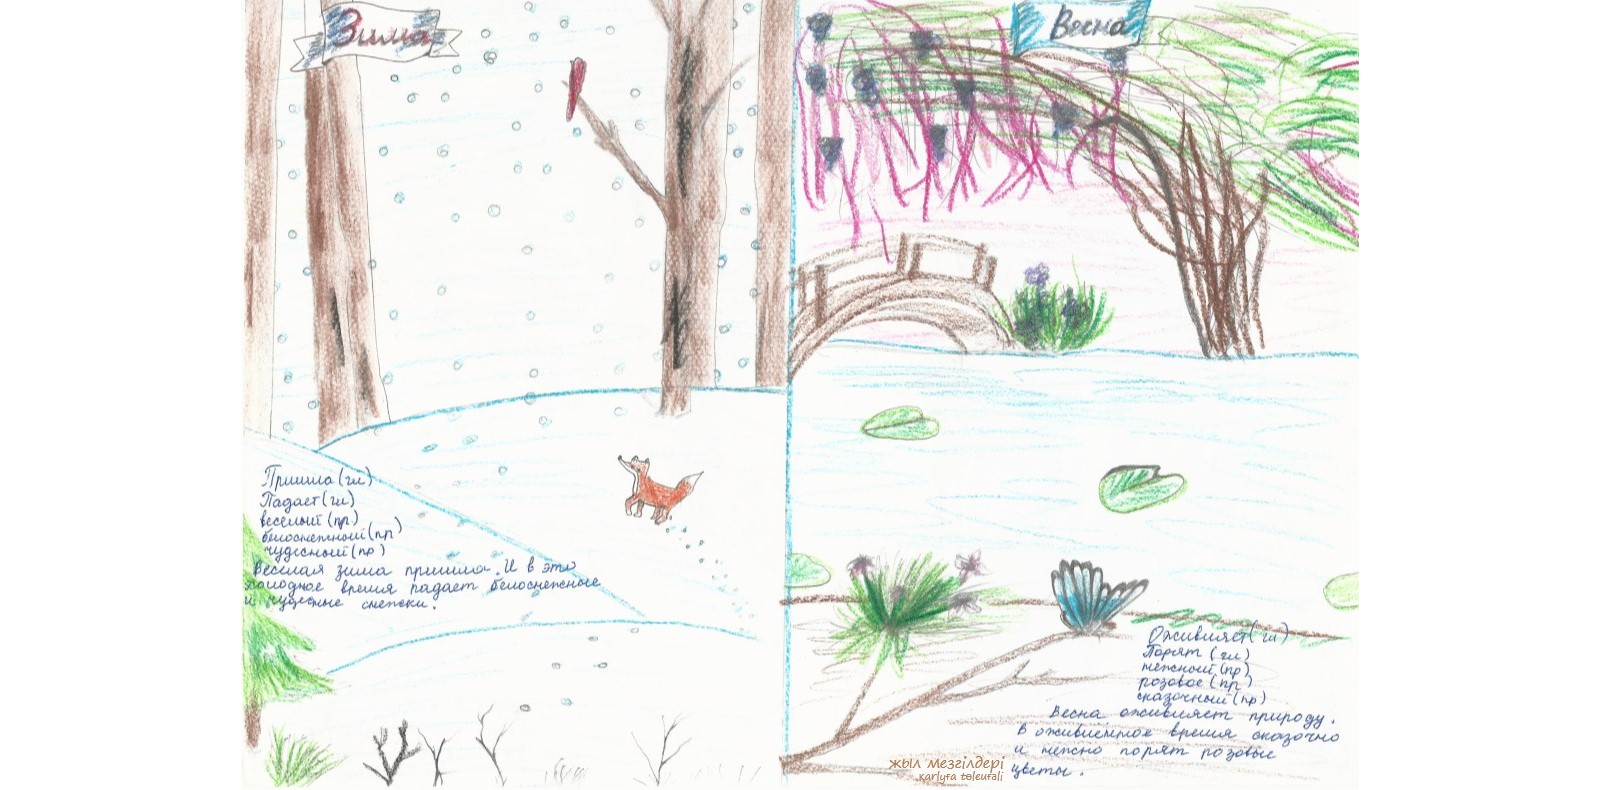 Зима
Пришла (гл)
Падает (гл)
весёлый (пр)
белоснежный (пр)
чудесный (пр)
Веселая зима пришла. И в это
холодное время падает белоснежные
и чудесные снежки.
Весна
Оживляет (гл)
Парят (гл)
нежный (пр)
розовое (пр)
сказочный (пр)
Весна оживляет природу.
В оживленное время сказочно
и нежно парят розовые
цветы.
жыл мезгілдері
қarlyғa төleutәli